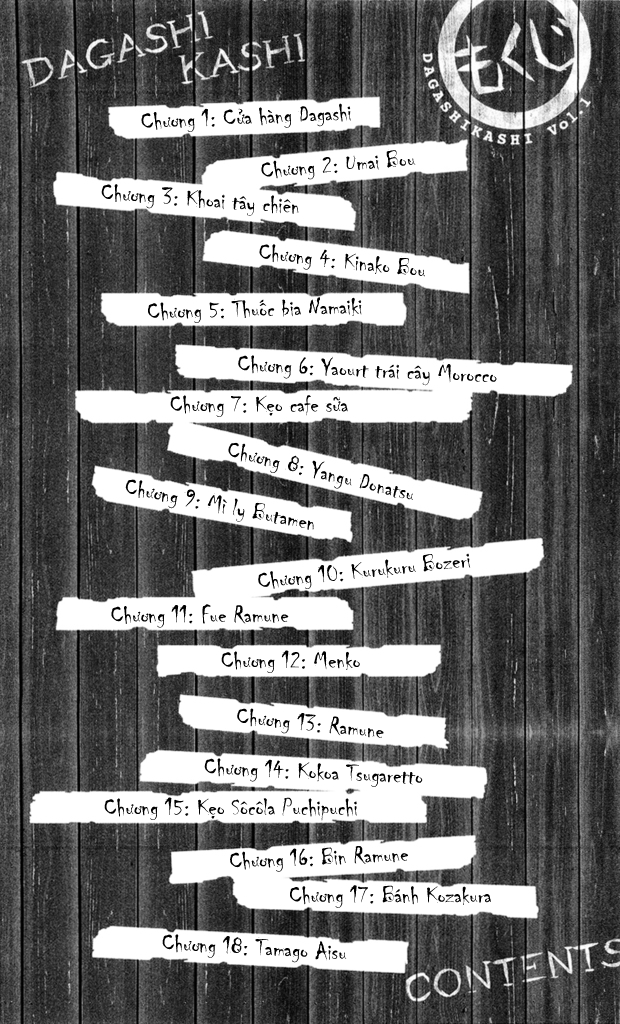 DAGASHI
KASHI
もくじ
DAGASHIKASHI Vol.1
Chương 1: Cửa hàng Dagashi
Chương 2: Umai Bou
Chương 3: Khoai tây chiên
Chương 4: Kinako Bou
Chương 5: Thuốc bia Namaiki
Chương 6: Yaourt trái cây Morocco
Chương 7: Kẹo cafe sữa
Chương 8: Yangu Donatsu
Chương 9: Mì ly Butamen
Chương 10: Kurukuru Bozeri
Chương 11: Fue Ramune
Chương 12: Menko
Chương 13: Ramune
Chương 14: Kokoa Tsugaretto
Chương 15: Kẹo Sôcôla Puchipuchi
Chương 16: Bin Ramune
Chương 17: Bánh Kozakura
Chương 18: Tamago Aisu
CONTENTS